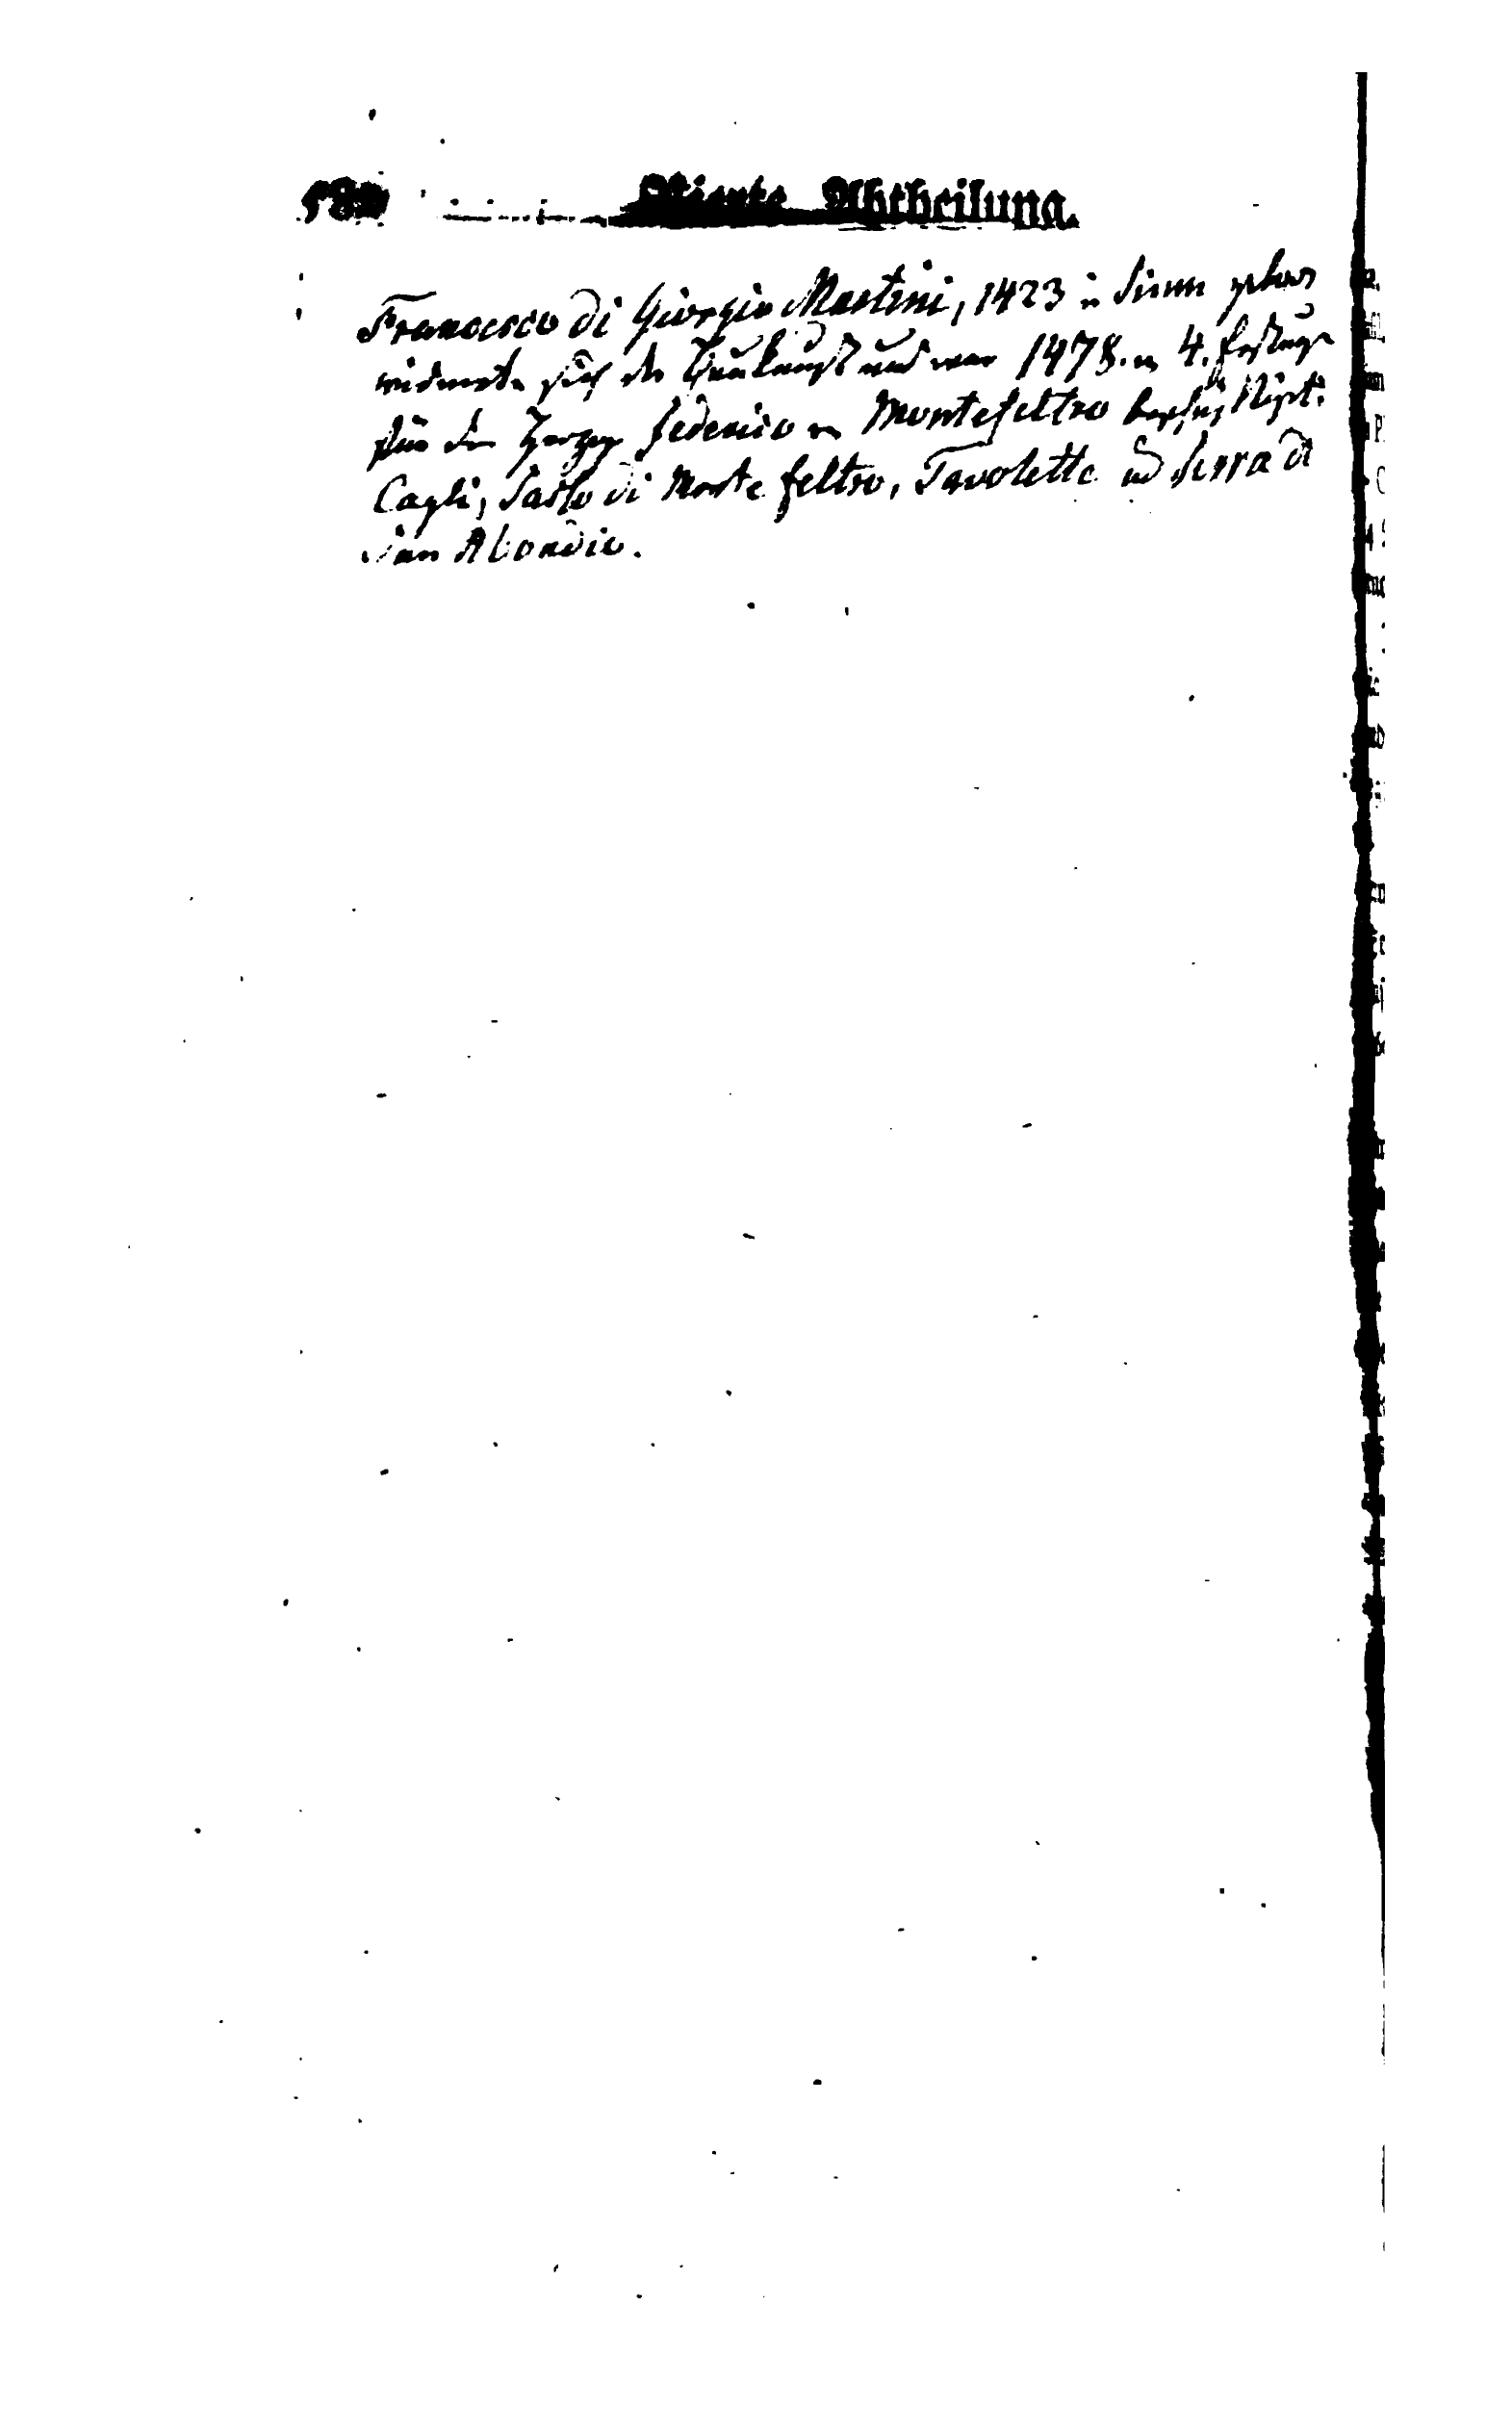 Abtheilung.
Francesco di Giorgio Martini, 1423 in Siena gebor
widmete sich der Baukunst und war 1478. m 4. Festung
für den Herzog Federico v Montefeltro beschäftigt:
Cagli, Sasso di Monte feltro, Tavoletto ud Serra di
San Abondio.